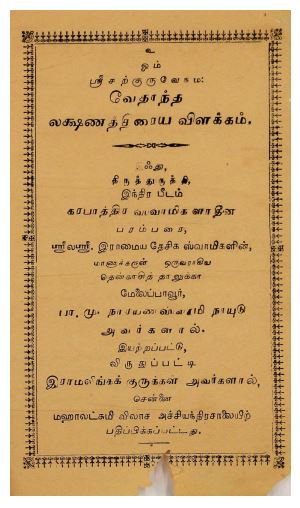 உ
ஓம்
ஸ்ரீசற்குருவேநம:
வேதாந்த
லக்ஷணத்திரைய விளக்கம்.
இஃது,
திருத்துருத்தி,
இந்திர பீடம்
கரபாத்திர ஸ்வாமிகளாதீன
பரம்பரை,
ஸ்ரீலஸ்ரீ, இராமைய தேசிக ஸ்வாமிகளின்,
மாணாக்கருள் ஒருவராகிய
தென்காசித் தாலுக்கா
மேலைப்பாவூர்,
பா. மு. நாராயணஸ்வாமி நாயுடு
அவர்களால்.
இயற்றப்பட்டு,
விருதுப்பட்டி
இராமலிங்கக் குருக்கள் அவர்களால்,
சென்னை
மஹாலட்சுமி விலாச அச்சியந்திரசாலையிற்
பதிப்பிக்கப்பட்டது.